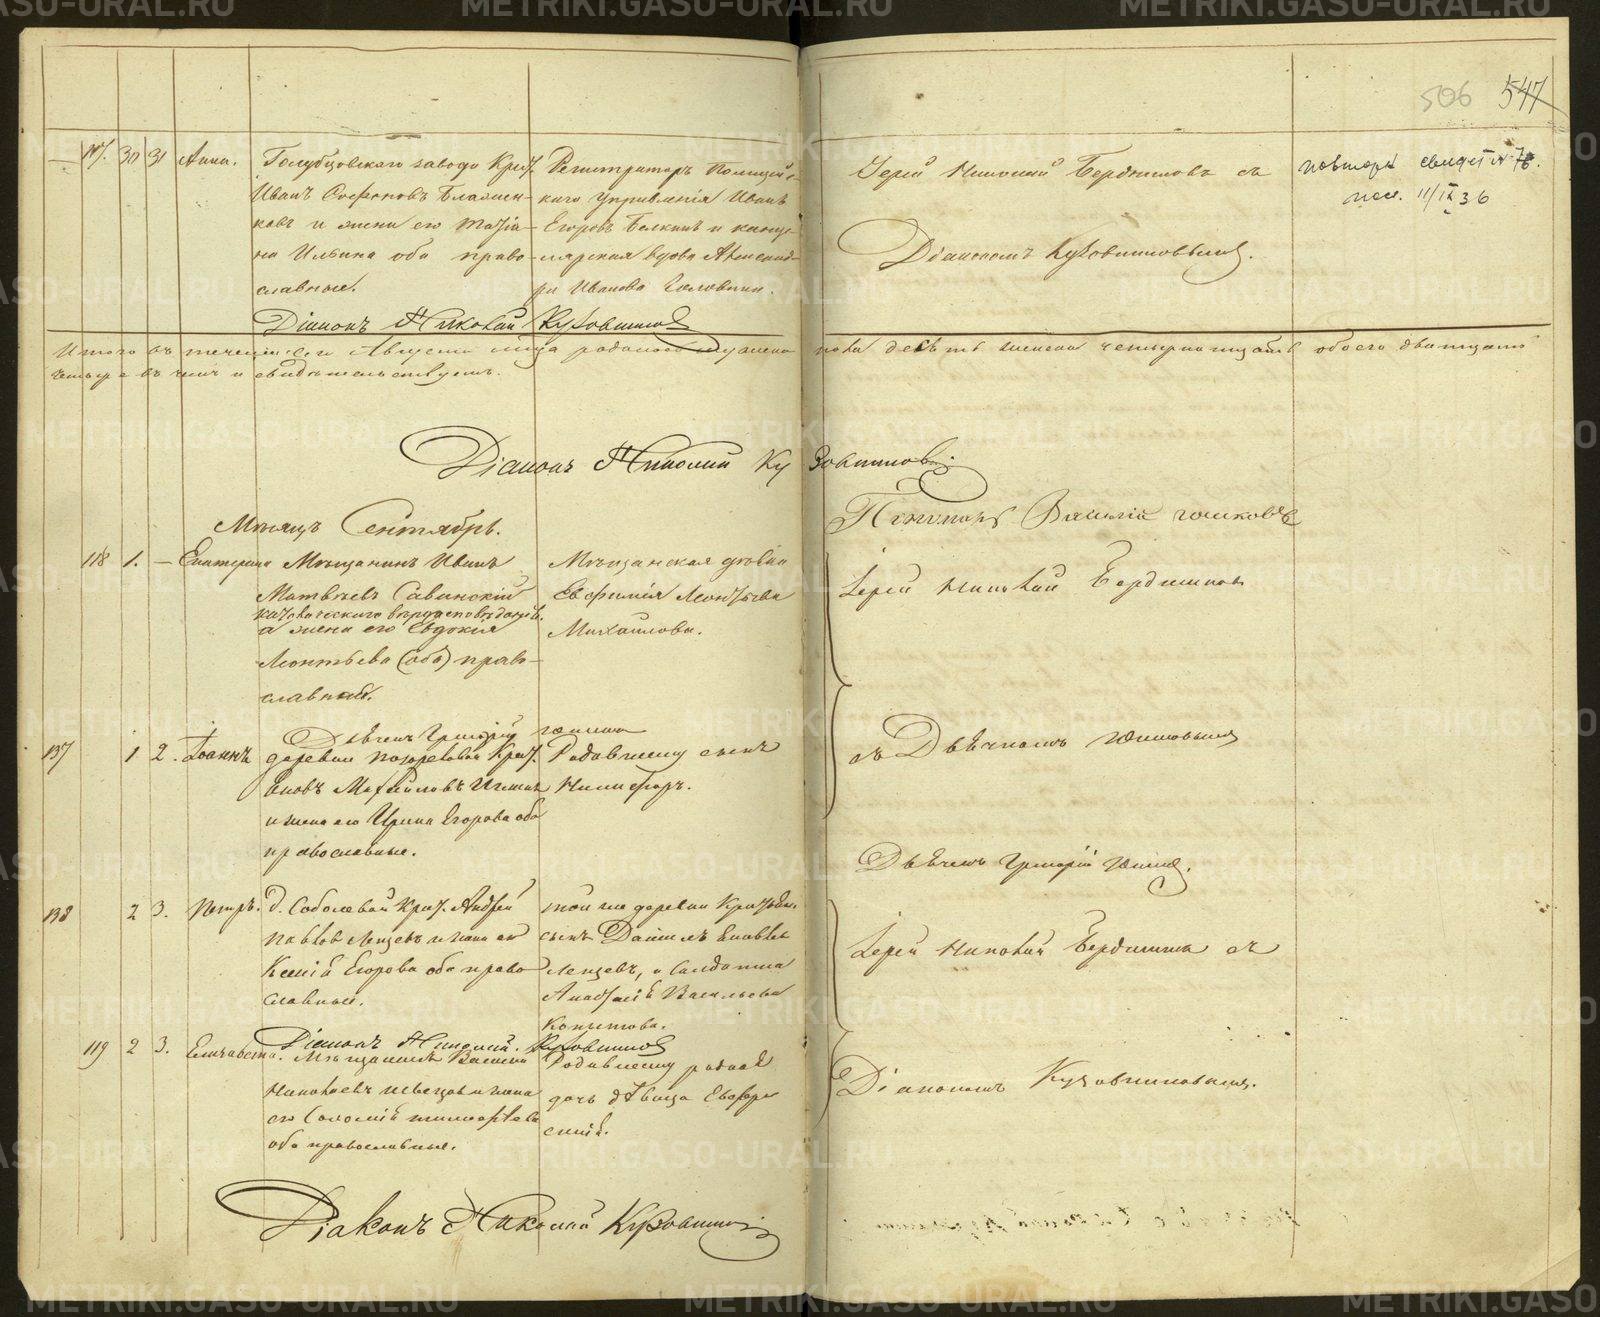 506 547
117. 30 31 Анна.
Голубцовскаго завода Крест.
Иванъ Софоновъ
и жена его Татiа-
на Ильина оба право-
славные.
Регистраторъ Полицейс-
каго Управленiя Иванъ
Егоровъ Белкинъ и канце-
лярская вдова Александ-
ра Иванова
Iерей Николай Бердниковъ съ
Дiакономъ Кузовниковымъ.
повтор. свидет № 76.
11/IX 36
Дiаконъ Николай Кузовниковъ
Итого въ теченiи Августа м-ца родилось мужеска пола десять женска четырнатцать обоего дватцать
четыре въ чемъ и свидетельствуемъ.
Дiаконъ Николай Кузовниковъ
Пономарь Василiй
Месяцъ Сентябрь.
118 1. — Екатерина
Мещанинъ Иванъ
Матвеевъ Савинскiй
католическаго вероисповеданiя,
а жена его Евдокiя
Леонтьева (оба) право-
славная.
Мещанская девица
Евфимiя Леонтьева
Михайлова.
Iерей Николай Бердниковъ
137 1 2. Iоаннъ
деревни Крест.
Михайловъ
и жена его Ирина Егорова оба
православные.
Родившему сынъ
Никифоръ.
съ Дьячкомъ
Дьячекъ Григорiй
138 2 3. Петръ.
д. Соболевой Крест. Андрей
Павловъ Ленцевъ и жена его
Ксенiя Егорова оба право-
славные.
той же деревни Крестьян.
сынъ Данiилъ Павловъ
Ленцевъ, и Солдатка
Анастасiя Васильева
Копытова.
Iерей Николай Бердниковъ съ
Дiаконъ Николай Кузовниковъ
119 2 3. Елизавета.
Мещанинъ Василiй
Николаевъ Швецовъ и жена
его Соломiя Тимофеева
оба православные.
Родившему родная
дочь девица Евфро-
синiя.
Дiакономъ Кузовниковымъ.
Дiаконъ Николай Кузовниковъ